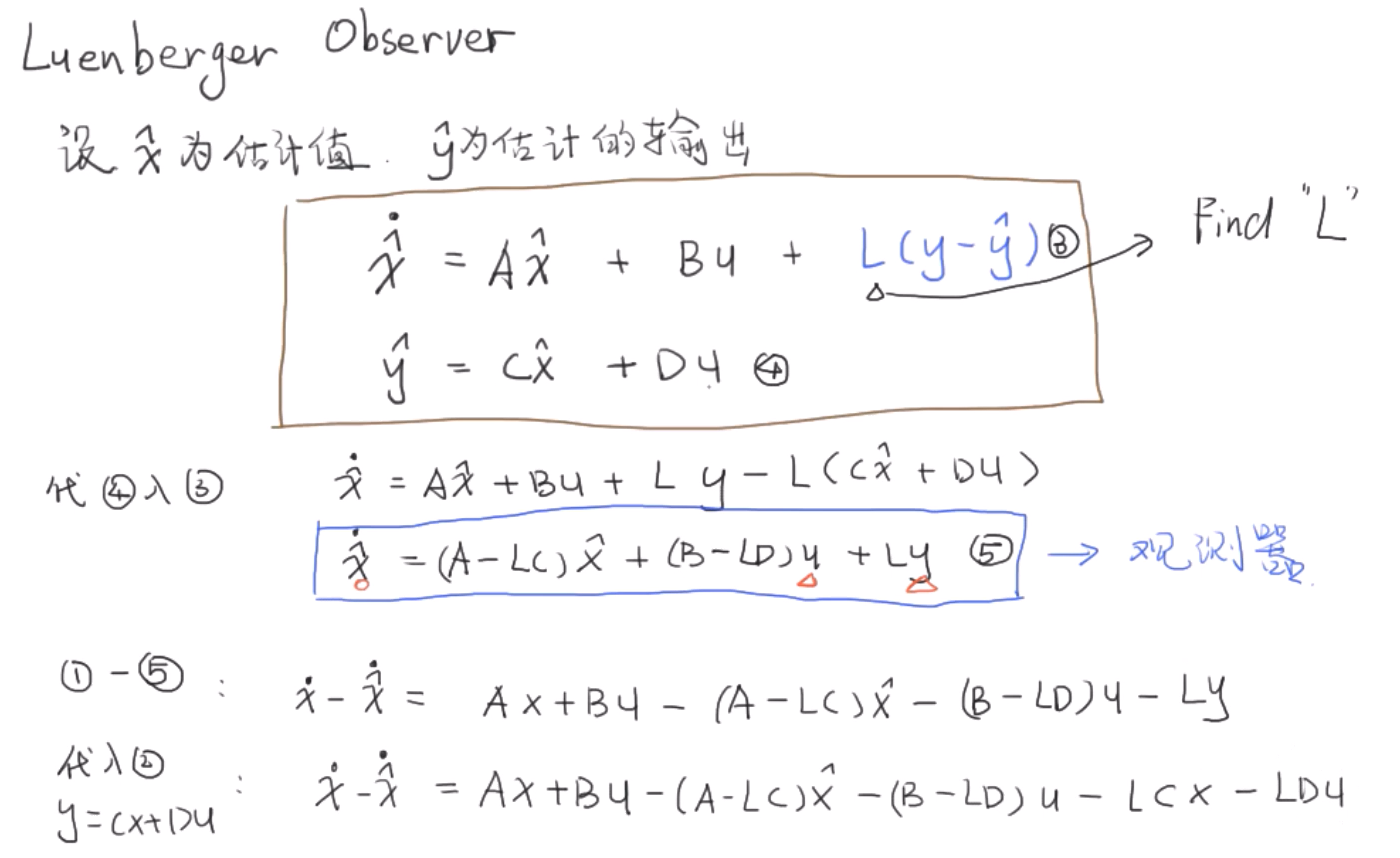 Luenberger Observer
设 x̂ 为估计值. ŷ为估计的输出
x̂̇ = Ax̂ + Bu + L(y-ŷ) ③ → Find "L"
ŷ = Cx̂ + Du ④
代④入③ x̂̇ = Ax̂ + Bu + Ly - L(Cx̂ + Du)
x̂̇ = (A-LC)x̂ + (B-LD)u + Ly ⑤ → 观测器
①-⑤: ẋ - x̂̇ = Ax + Bu - (A-LC)x̂ - (B-LD)u - Ly
代入② : ẋ - x̂̇ = Ax + Bu - (A-LC)x̂ - (B-LD)u - LCx - LDu
y=Cx+Du